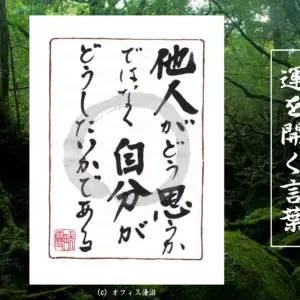 運を開く言葉
他人がどう思うか
ではなく自分が
どうしたいかである
(c) オフィス優沼